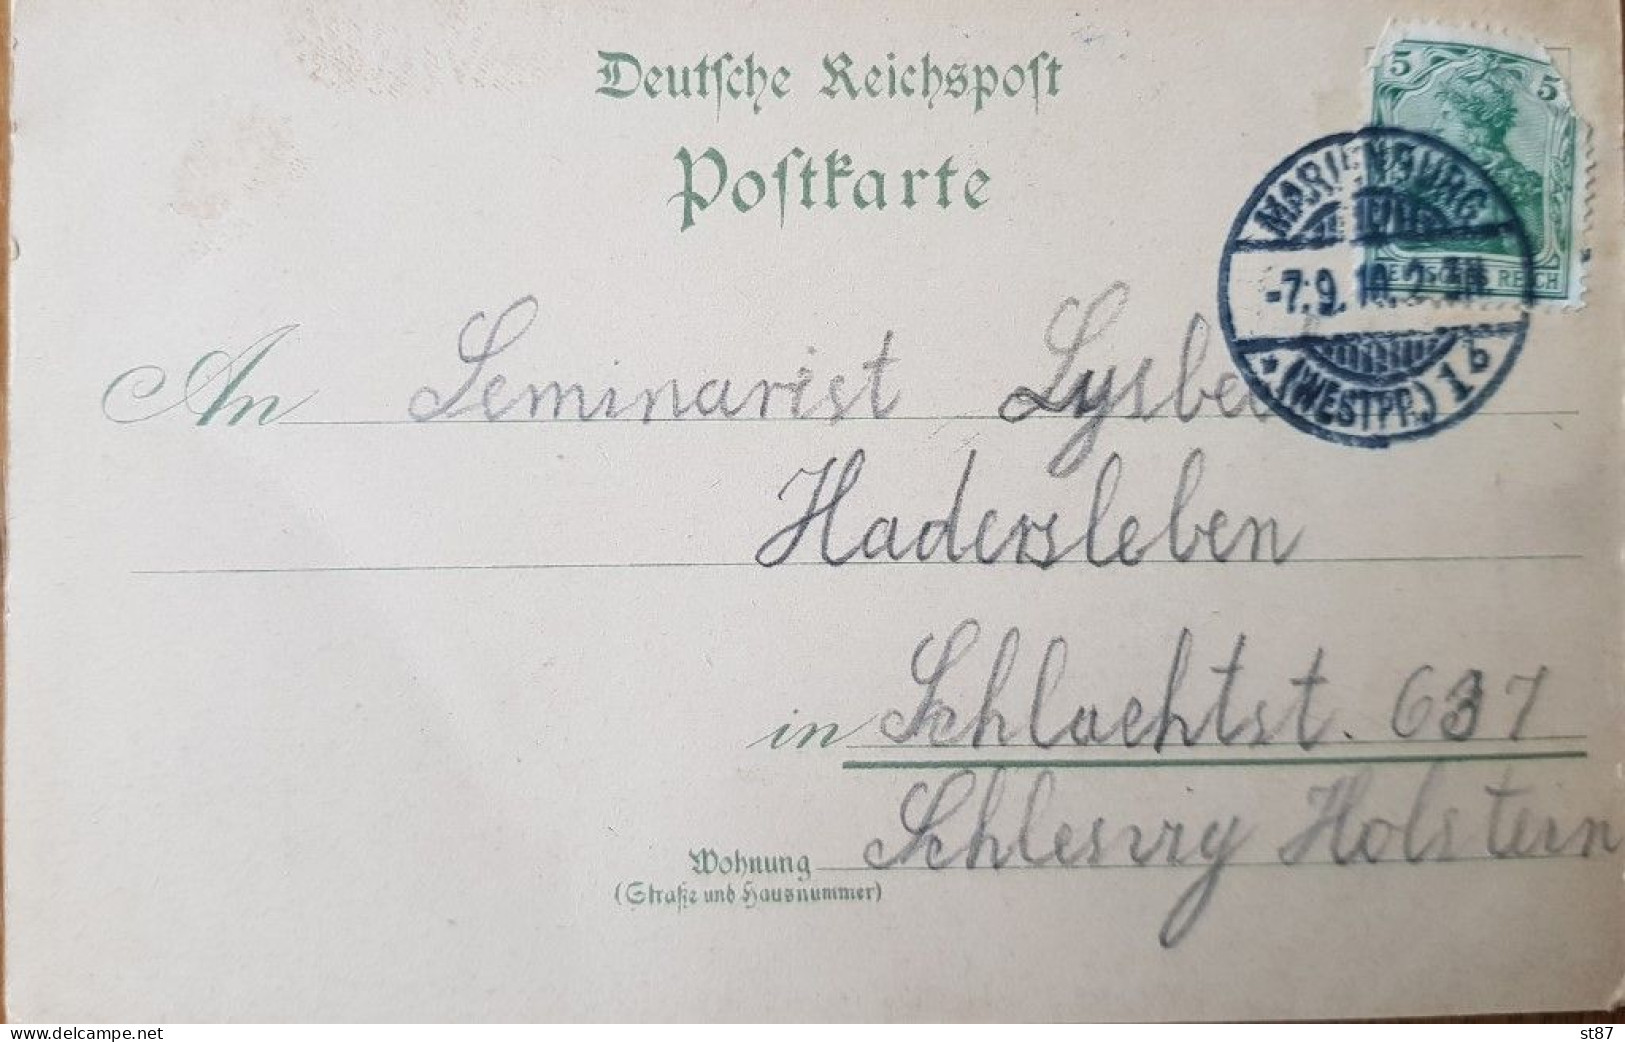 Deutsche Reichspost
Postkarte
5 5
DEUTSCHES REICH
MARIENBURG
-7.9.10.
* (WESTPR.) 1 b
An Seminarist
Hadersleben
in Schlachtst. 637
Schleswig Holstein
Wohnung
(Straße und Hausnummer)
www.delcampe.net
st87